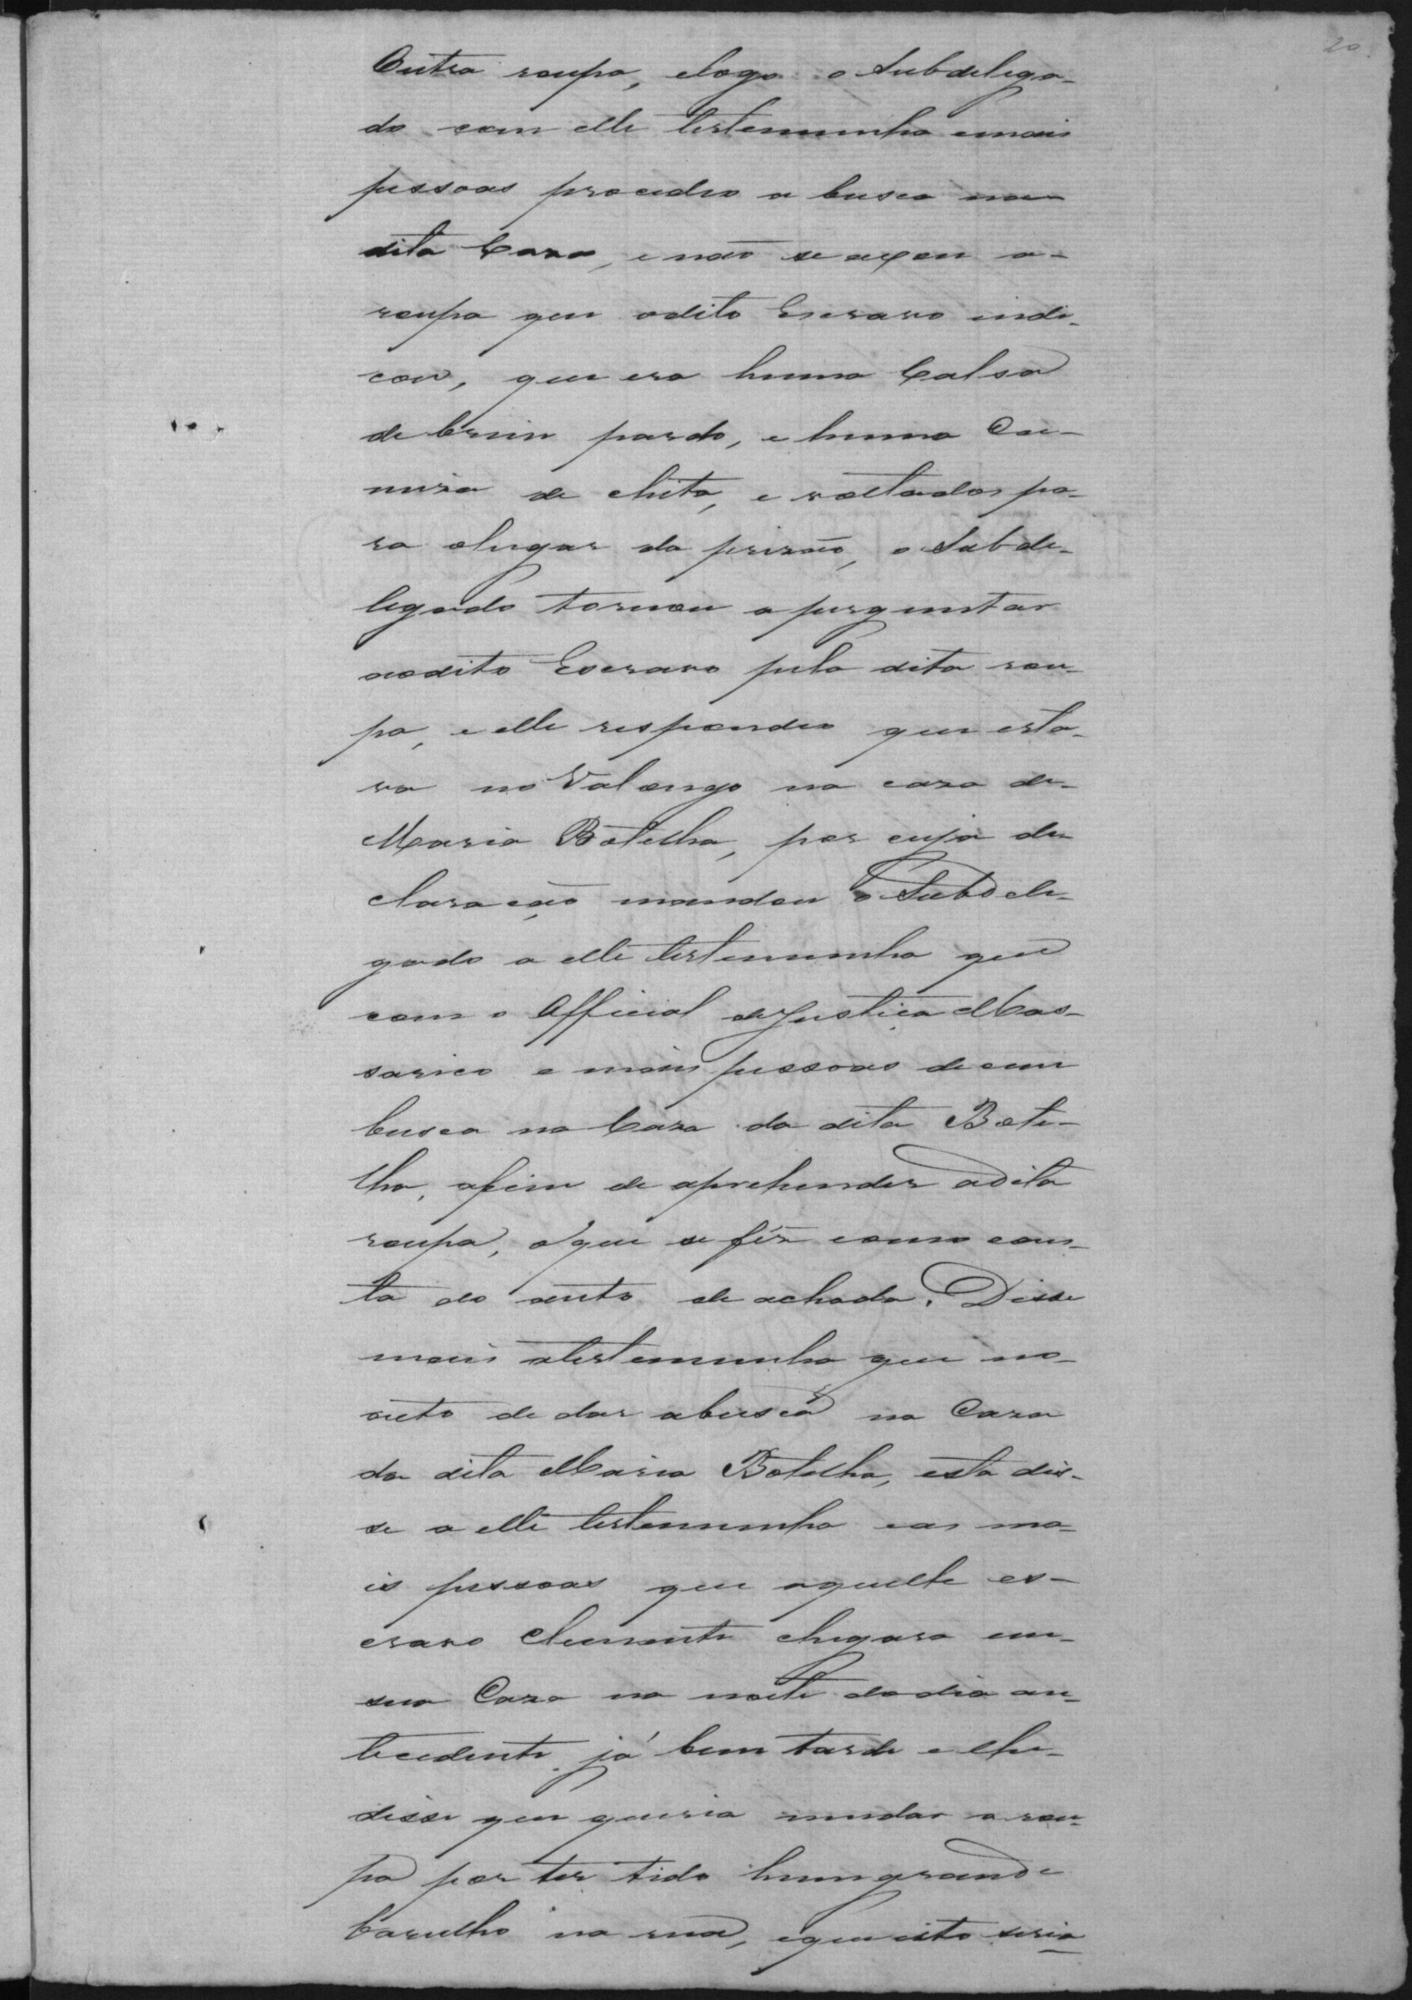 20
Outra roupa, elogo o Subdelega-
do com elle testemunha emais
pessoas procedeo a busca na
dita Caza, e não se axou a-
roupa que odito Escravo indi-
cou, que era huma Calsa
de brim pardo, e huma Ca-
miza de chita, e voltados pa-
ra olugar da prizão, o Subde-
legado tornou a perguntar
aodito Escravo pela dita rou-
pa, e elle respondeo que esta-
va no Valongo na caza de-
Maria Botelha, por cuja de
claração mandou o Subdele-
gado a elle testemunha que
com o Official deJustiça Mas-
sarico e mais pessoas decem
busca na Caza da dita Bote-
lha, afim de aprehender adita
roupa, o que se fez como cons-
ta do auto de achada. Disse
mais atestemunha que no-
auto de dar abusca na Caza
da dita Maria Botelha, esta dis-
se a elle testemunha eas ma-
is pessoas que aquelle es-
cravo Clemente chegara em-
sua Caza na noite dodia an-
tecedente já bem tarde e lhe-
disse que queria mudar a rou-
pa por ter tido humgrande
barulho na rua, equeisto seria